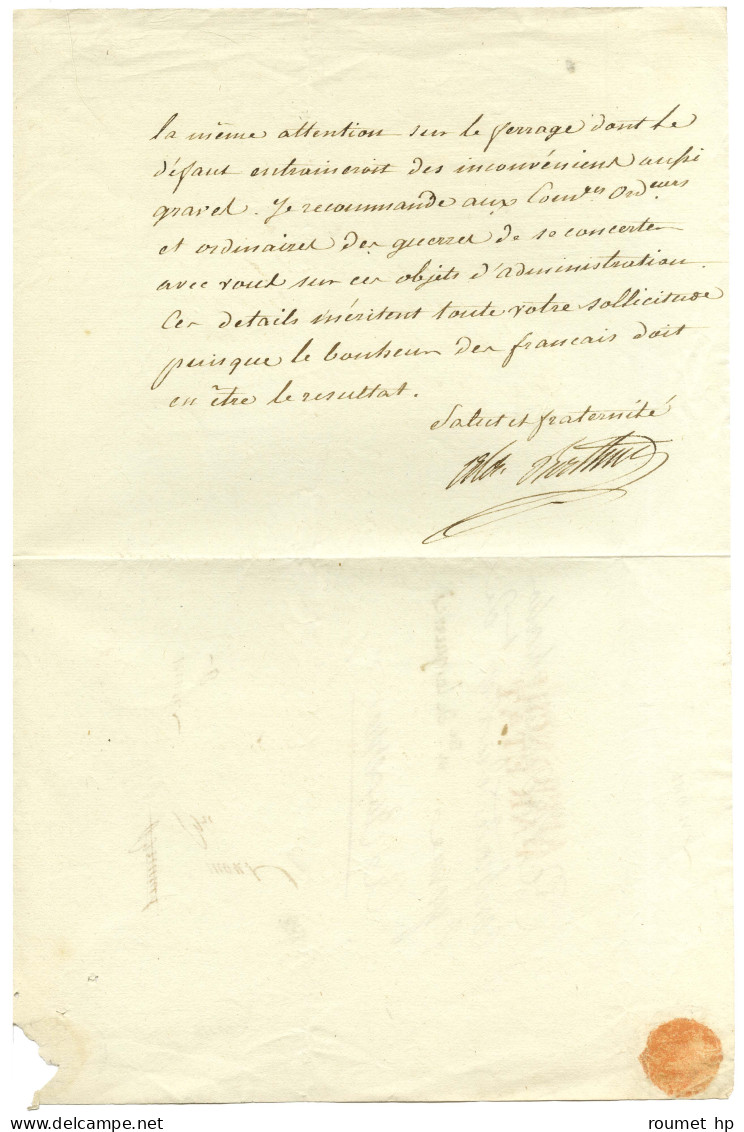 la même attention sur le ferrage dont le
défaut entraineroit des inconvéniens aussi
graves. Je recommande aux Com.res Ord.eurs
et ordinaires des guerres de se concerter
avec vous sur ces objets d'administration.
Ces details méritent toute votre sollicitude
puisque le bonheur des français doit
en être le resultat.
Salut et fraternité
Alex Berthier
www.roumet hp